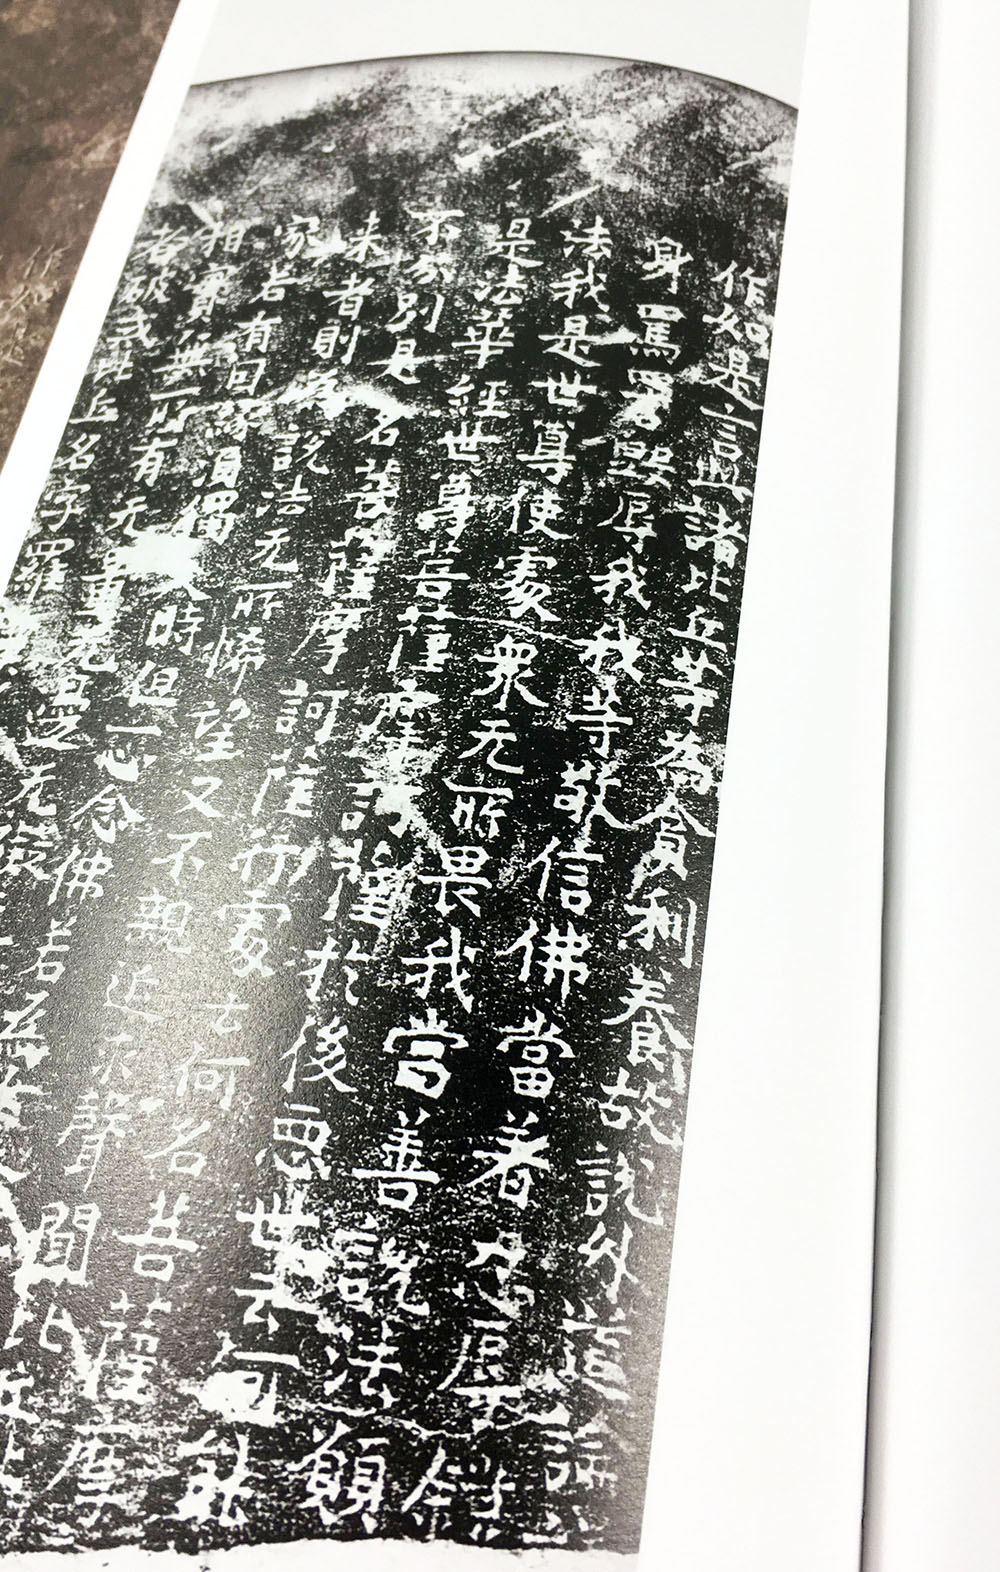 作如是言諸比丘等為貪利養故說外道論
身罵詈毀辱我我等敬信佛當著忍辱鎧
法我是世尊使處衆元所畏我當善說法願
是法華經世尊菩薩摩訶薩於後惡世云何能
不分別是名菩薩摩訶薩行處云何名菩薩摩
来者則為說法无所悕望又不親近求聲聞比丘
家若有因緣須獨入時但一心念佛若為女
相實無所有无量无邊无礙
者破戒比丘名字羅